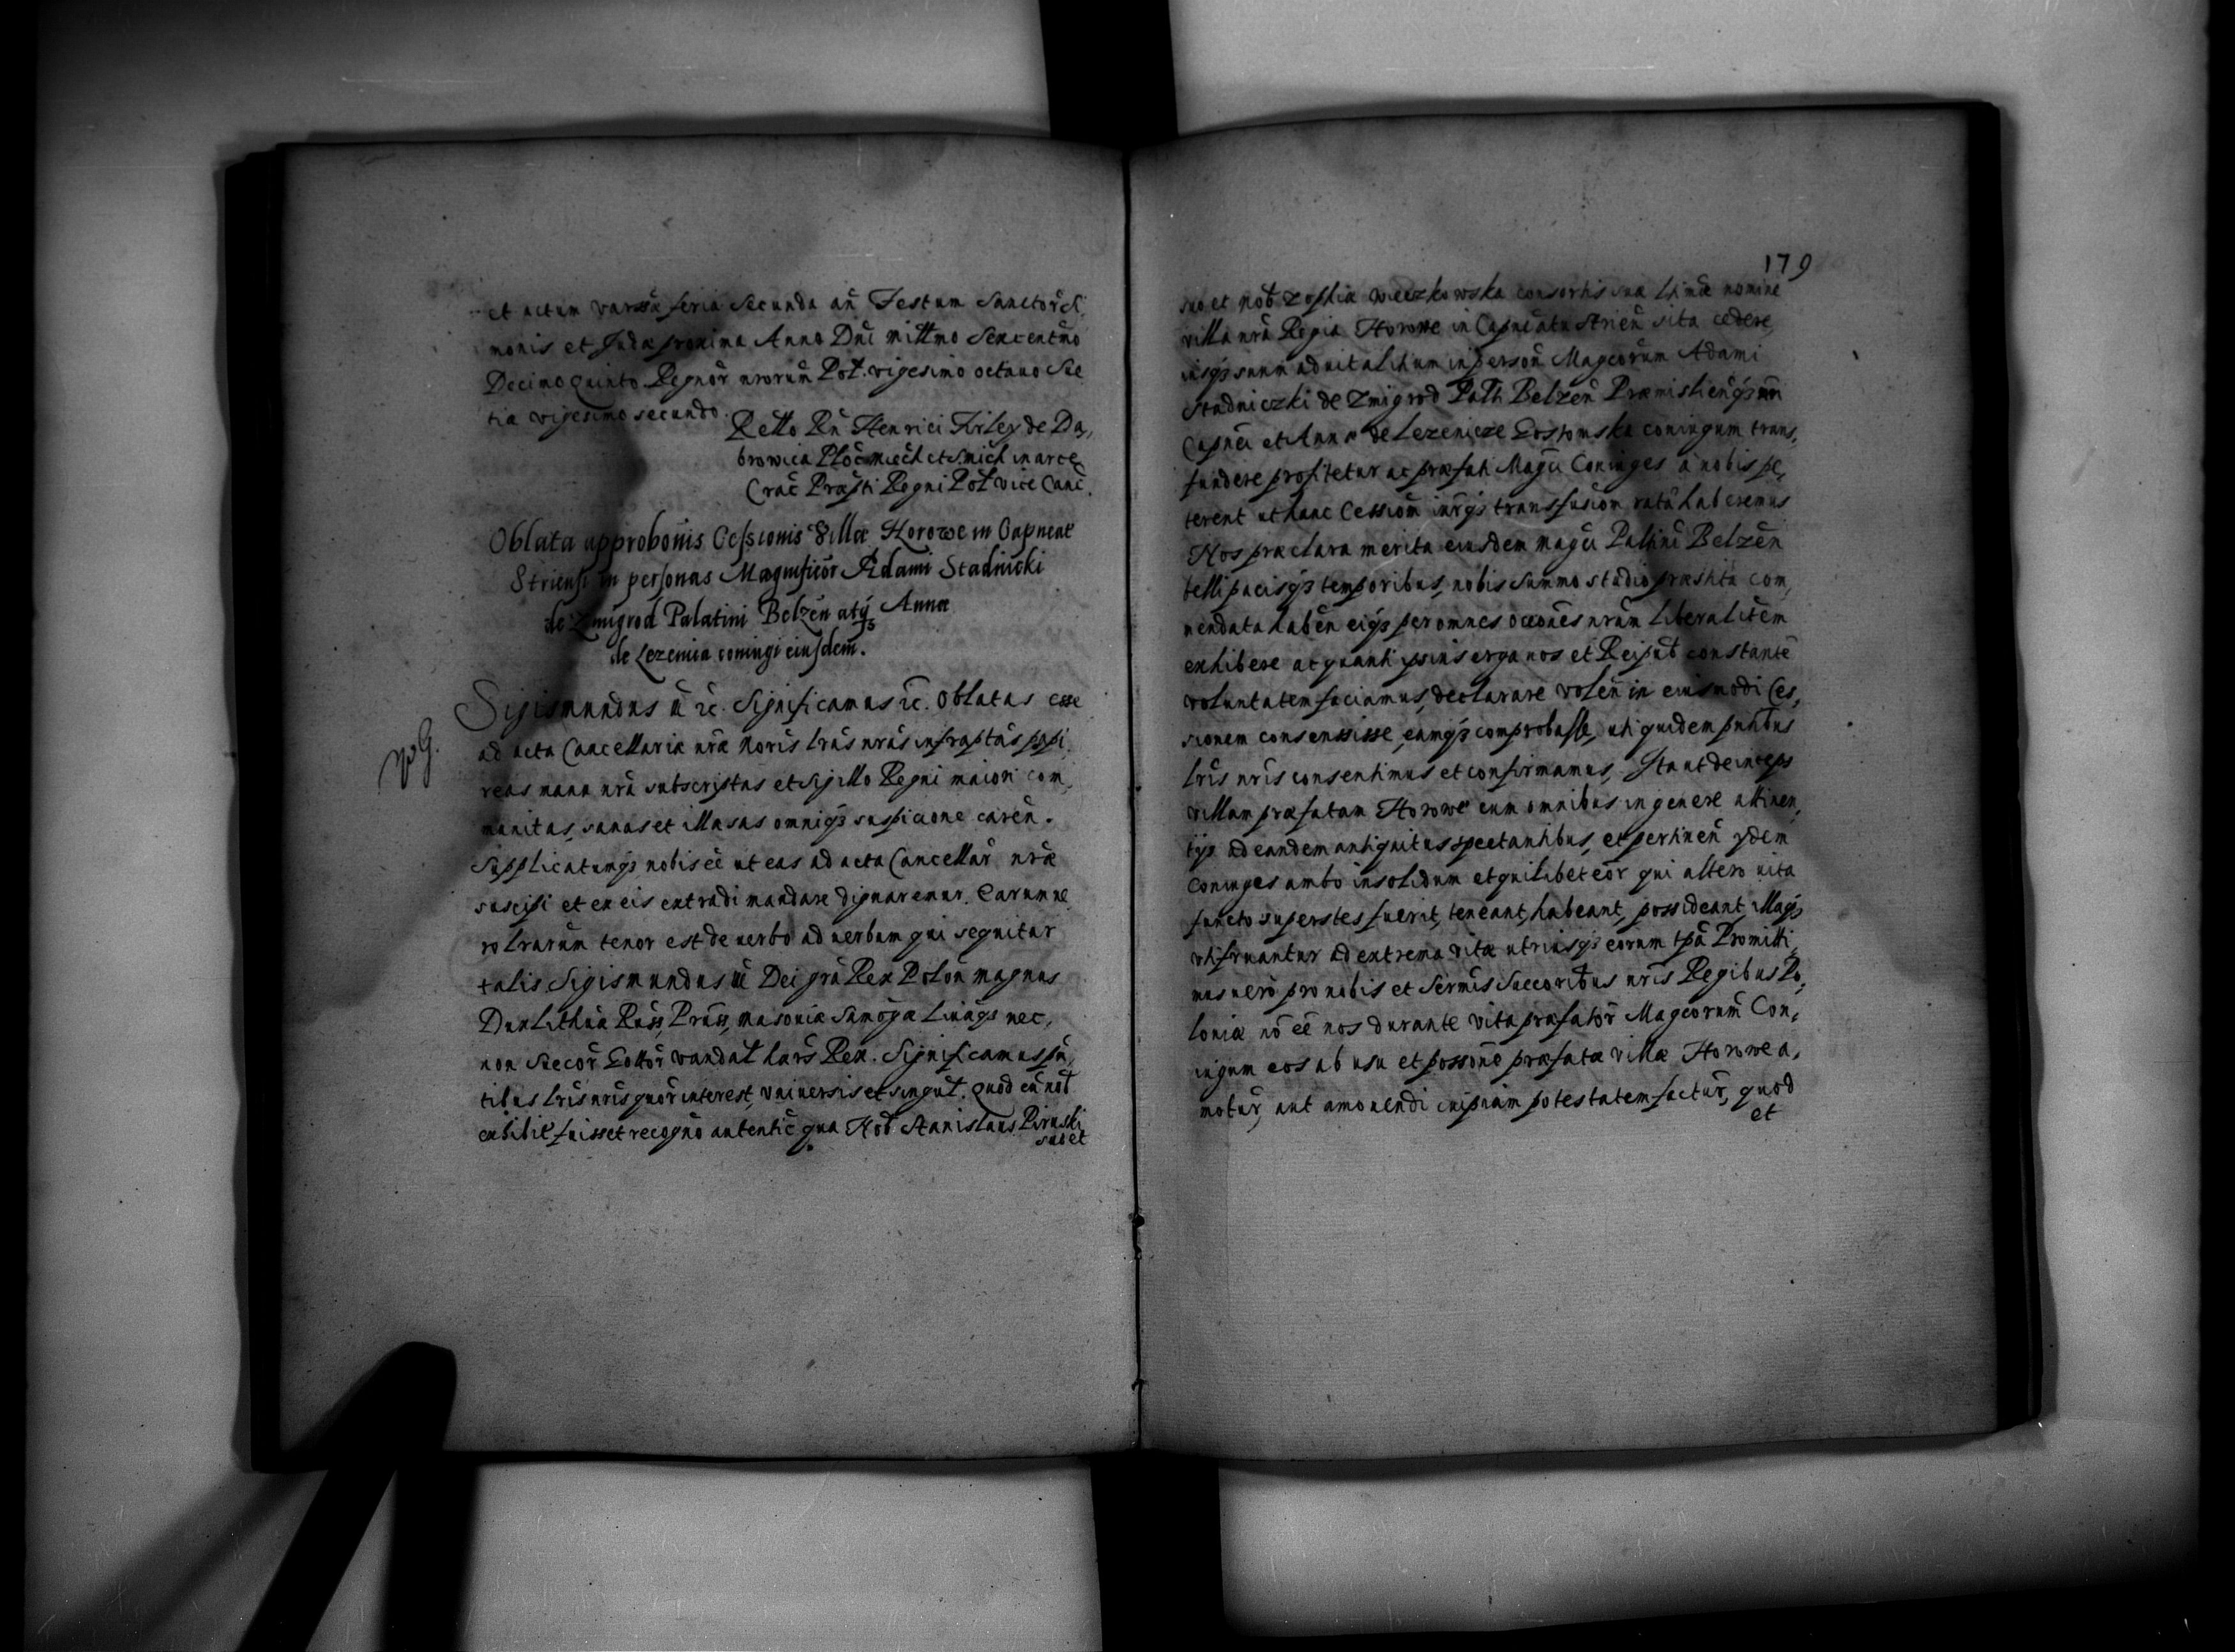 et actum Varsãe feria Secunda añ Festum Sanctorũ Si,
monis et Judæ proxima Anno Dñi Millmo Sexcentmo
Decimo quinto Regnor nrorum Pol. vigesimo octauo Sue
tiæ vigesimo secundo.
Rello Rñ Henrici Firley de Da,
browica Ploc̃ Miech et Smich in arce
Crac̃ Præpti Regni Pol vice Canc̃.
Oblata approboñis Cessionis Villæ Horowe in Capneat
Striensi in personas Magnificor Adami Stadnicki
de Zmigrod Palatini Belzeñ atq3 Annæ
de Lezenia coniugi eiusdem.
W G.
Sigismundus iii rc. Significamus rc. Oblatas esse
ad acta Cancellariæ nræ noris lras nras infraptas papi,
reas manu nra subscriptas et Sigillo Regni maiori com,
munitas, sanas et illæsas omniq3 suspicione careñ.
Supplicatumq3 nobis eẽ ut eas ad acta Cancellar nræ
suscipi et ex eis extradi mandare dignaremur. Earum ue
ro lrarum tenor est de uerbo ad uerbum qui sequitur
talis Sigismundus iii Dei gra Rex Polon magnus
Dux Lithuæ Russ, Pruss, Masoniæ Samog̃æ Liuaq3 nec,
non Suecor Gottor Vandal hars Rex. Significamus pñ,
tibus lris nris quor interest, vniuersis et singul. Quod cũ nob
exhibit fuisset recogno autentic̃ qua Nob Stanislaus Piruski
suo et
179
suo et Nob Zophiæ Wieczkowska consortis suæ ltimæ nomine
villa nra Regia Horowe in Capneatu Strieñ sita cedere,
iusq3 suum aduitalitium in person Magcorum Adami
Stadniczki de Zmigrod Palti Belzeñ Præmislieñq3 nri
Capnei et Annæ de Lezenicze Gostomska coniugum trans,
fundere profitetur ac præfati Magci Coniuges a nobis pe,
terent ut hanc Cessiom iurq3 transfusiom ratã haberemus
Nos præclara merita eiusdem Magci Paltini Belzeñ
belli pacisq3 temporibus, nobis summo studio præstita com,
mendata habeñ eiq3 per omnes occones nram liberalitem
exhibere ac quanti ipsius erga nos et Reipub constante
voluntatem faciamus, declarare voleñ in eiusmodi Ces,
sionem consensisse, eamq3 comprobasse, uti quidem pntibus
lris nris consentimus et confirmamus, Ita ut deinceps
villam præfatam Horowe cum omnibus in genere attinen,
tijs ad eandem antiquitus spectantibus, et pertineñ ijdem
Coniuges ambo insolidum et quilibet eor qui altero uita
functo superstes fuerit, teneant, habeant, possideant, illaq3
utifruantur ad extrema vitæ utriusq3 eorum tpa Promitti,
mus uero pro nobis et Sermis Succoribus nris Regibus Po,
loniæ nõ eẽ nos durante vita præfator Magcorum Con,
iugum eos ab usu et possone præfatæ villæ Horowe a,
motur, aut amouendi cuipiam potestatem factur, quod
et